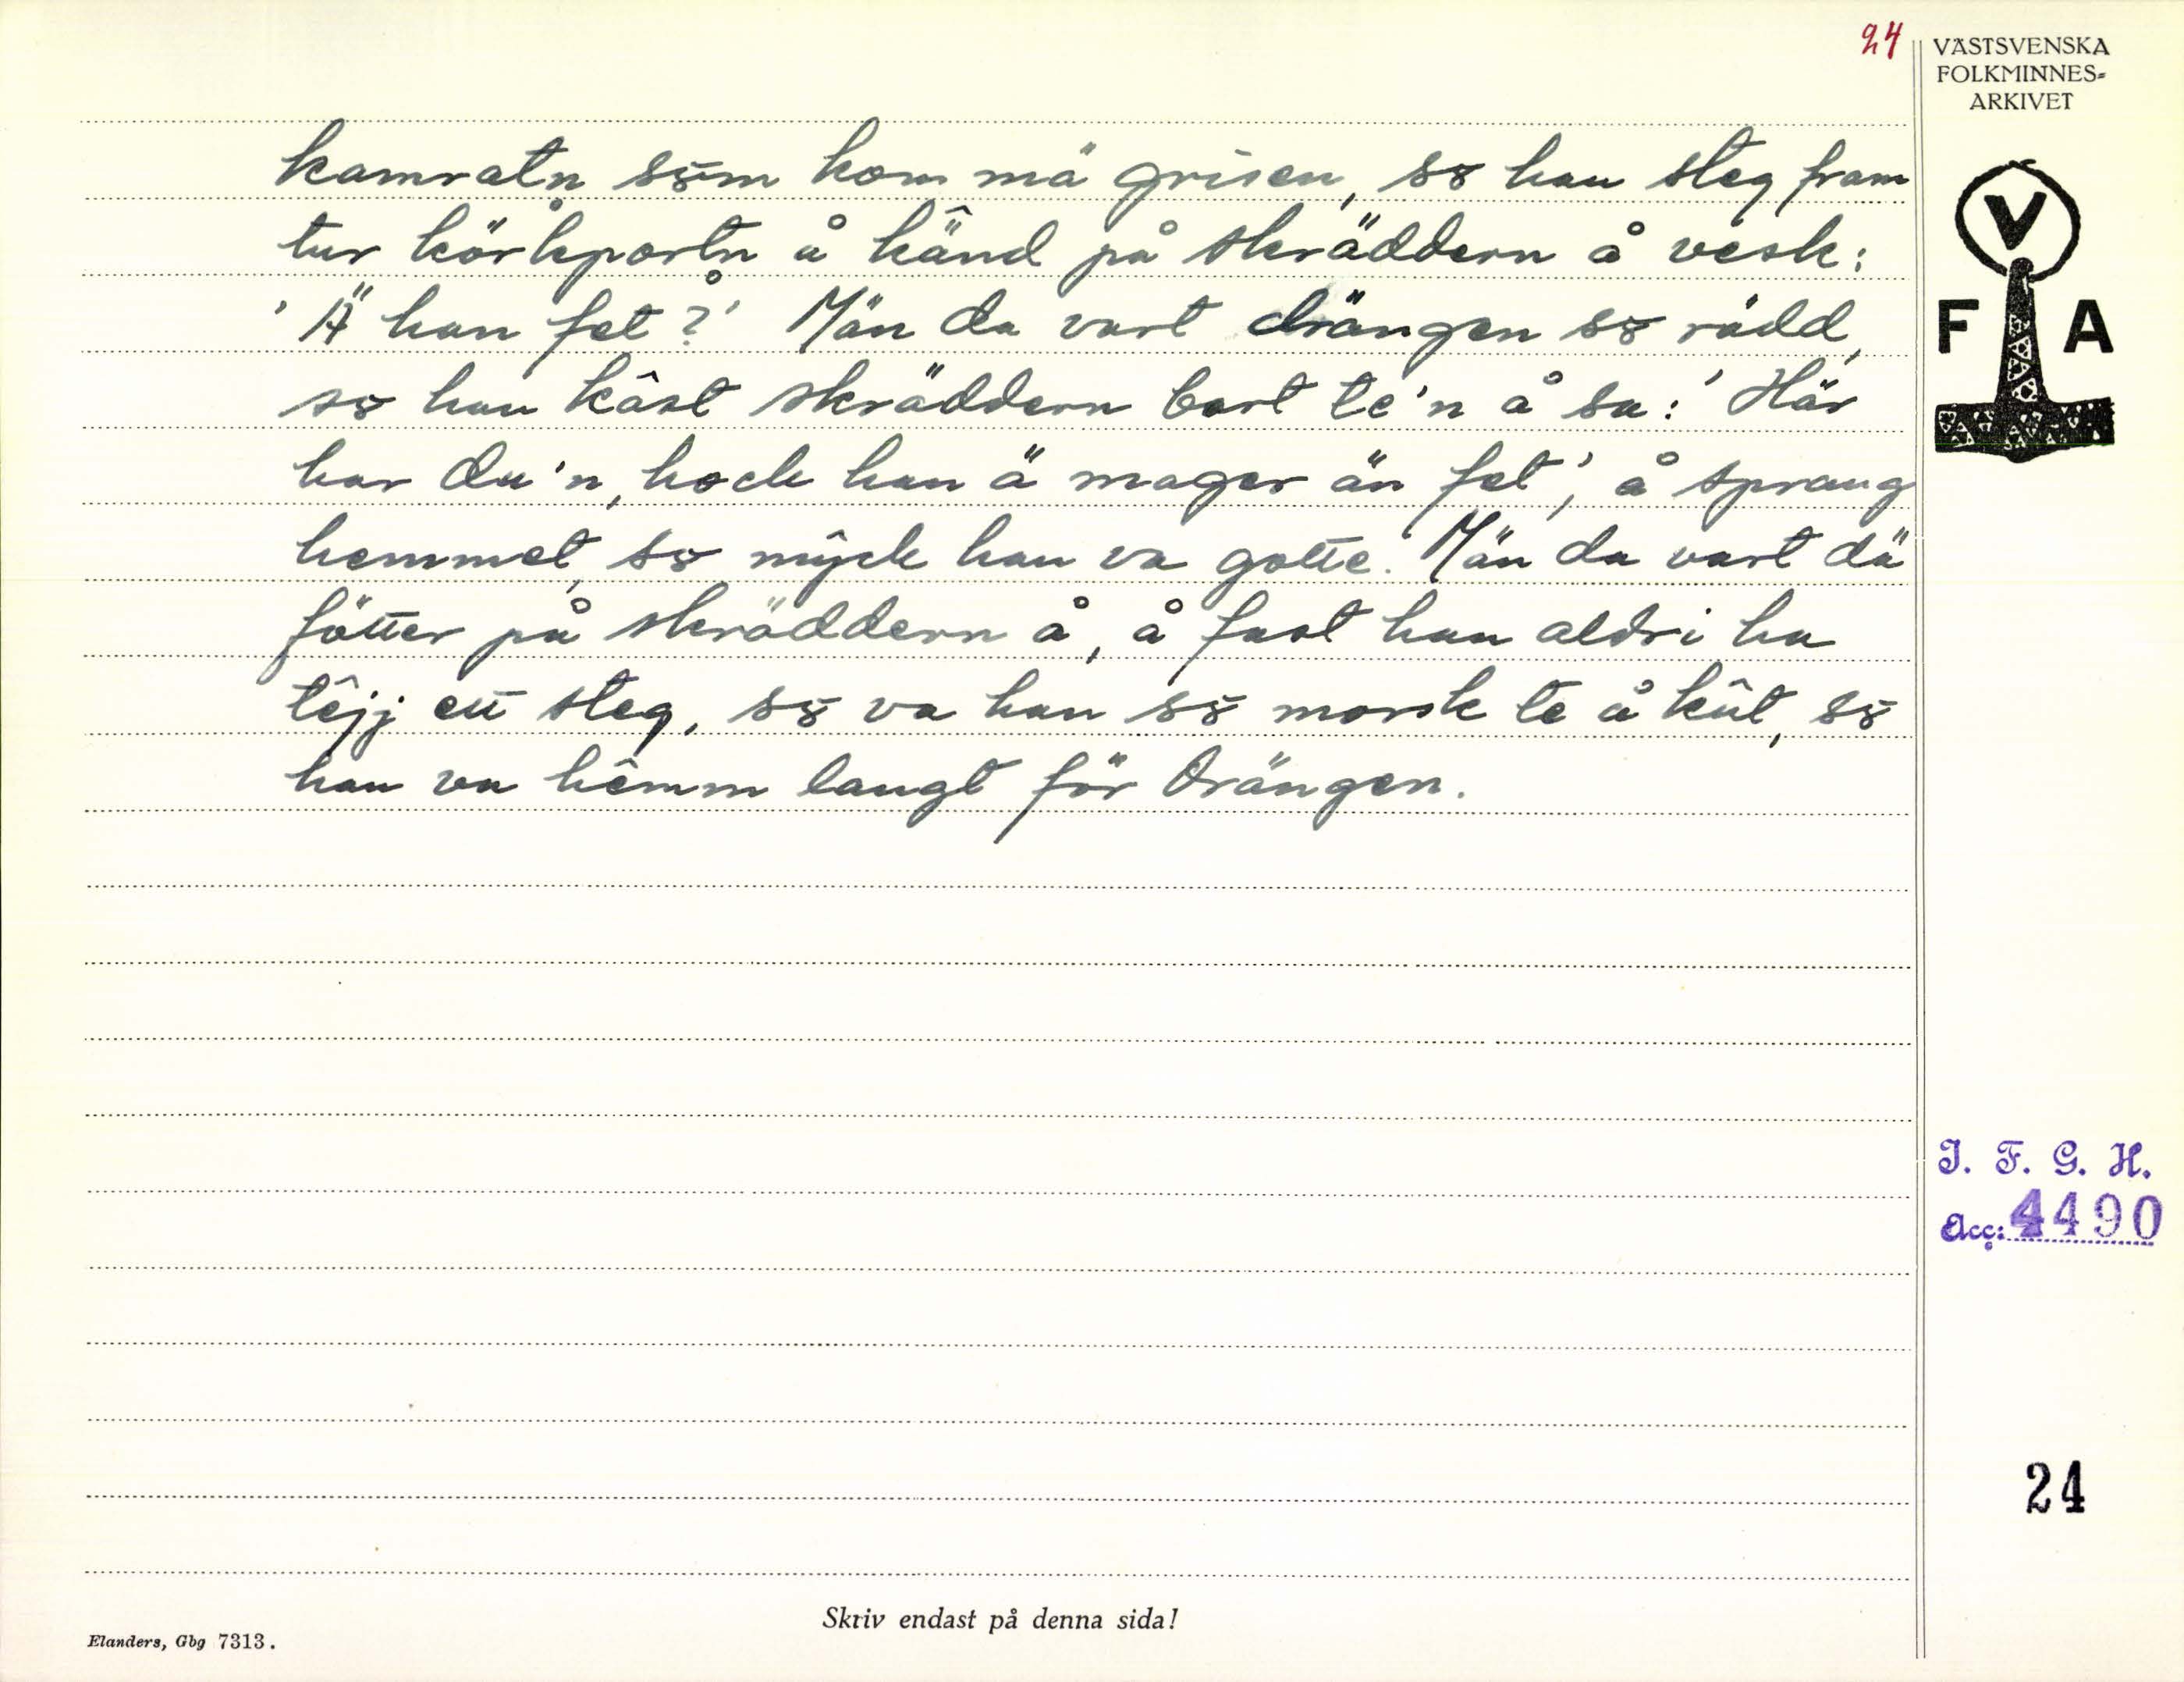 24
VÄSTSVENSKA
FOLKMINNES-
ARKIVET
V
F A
kamratn sȣm kom mä grisen, sȣ han steg fram
tur körkportn å känd på skräddern å vesk:
'Ä han fet?' Män da vart drängen sȣ rädd,
sȣ han kâst skräddern bort te'n å sa: 'Här
har du'n, hock han ä mager än fet', å sprang
hemmet, sȣ mŷck han va gotte. Män da vart dä
fötter på skräddern å, å fast han aldri ha
têjj ett steg, sȣ va han sȣ morsk te å kût, sȣ
han va hêmm langt för drängen.
I. F. G. H.
Acc: 4490
24
Skriv endast på denna sida!
Elanders, Gbg 7313.